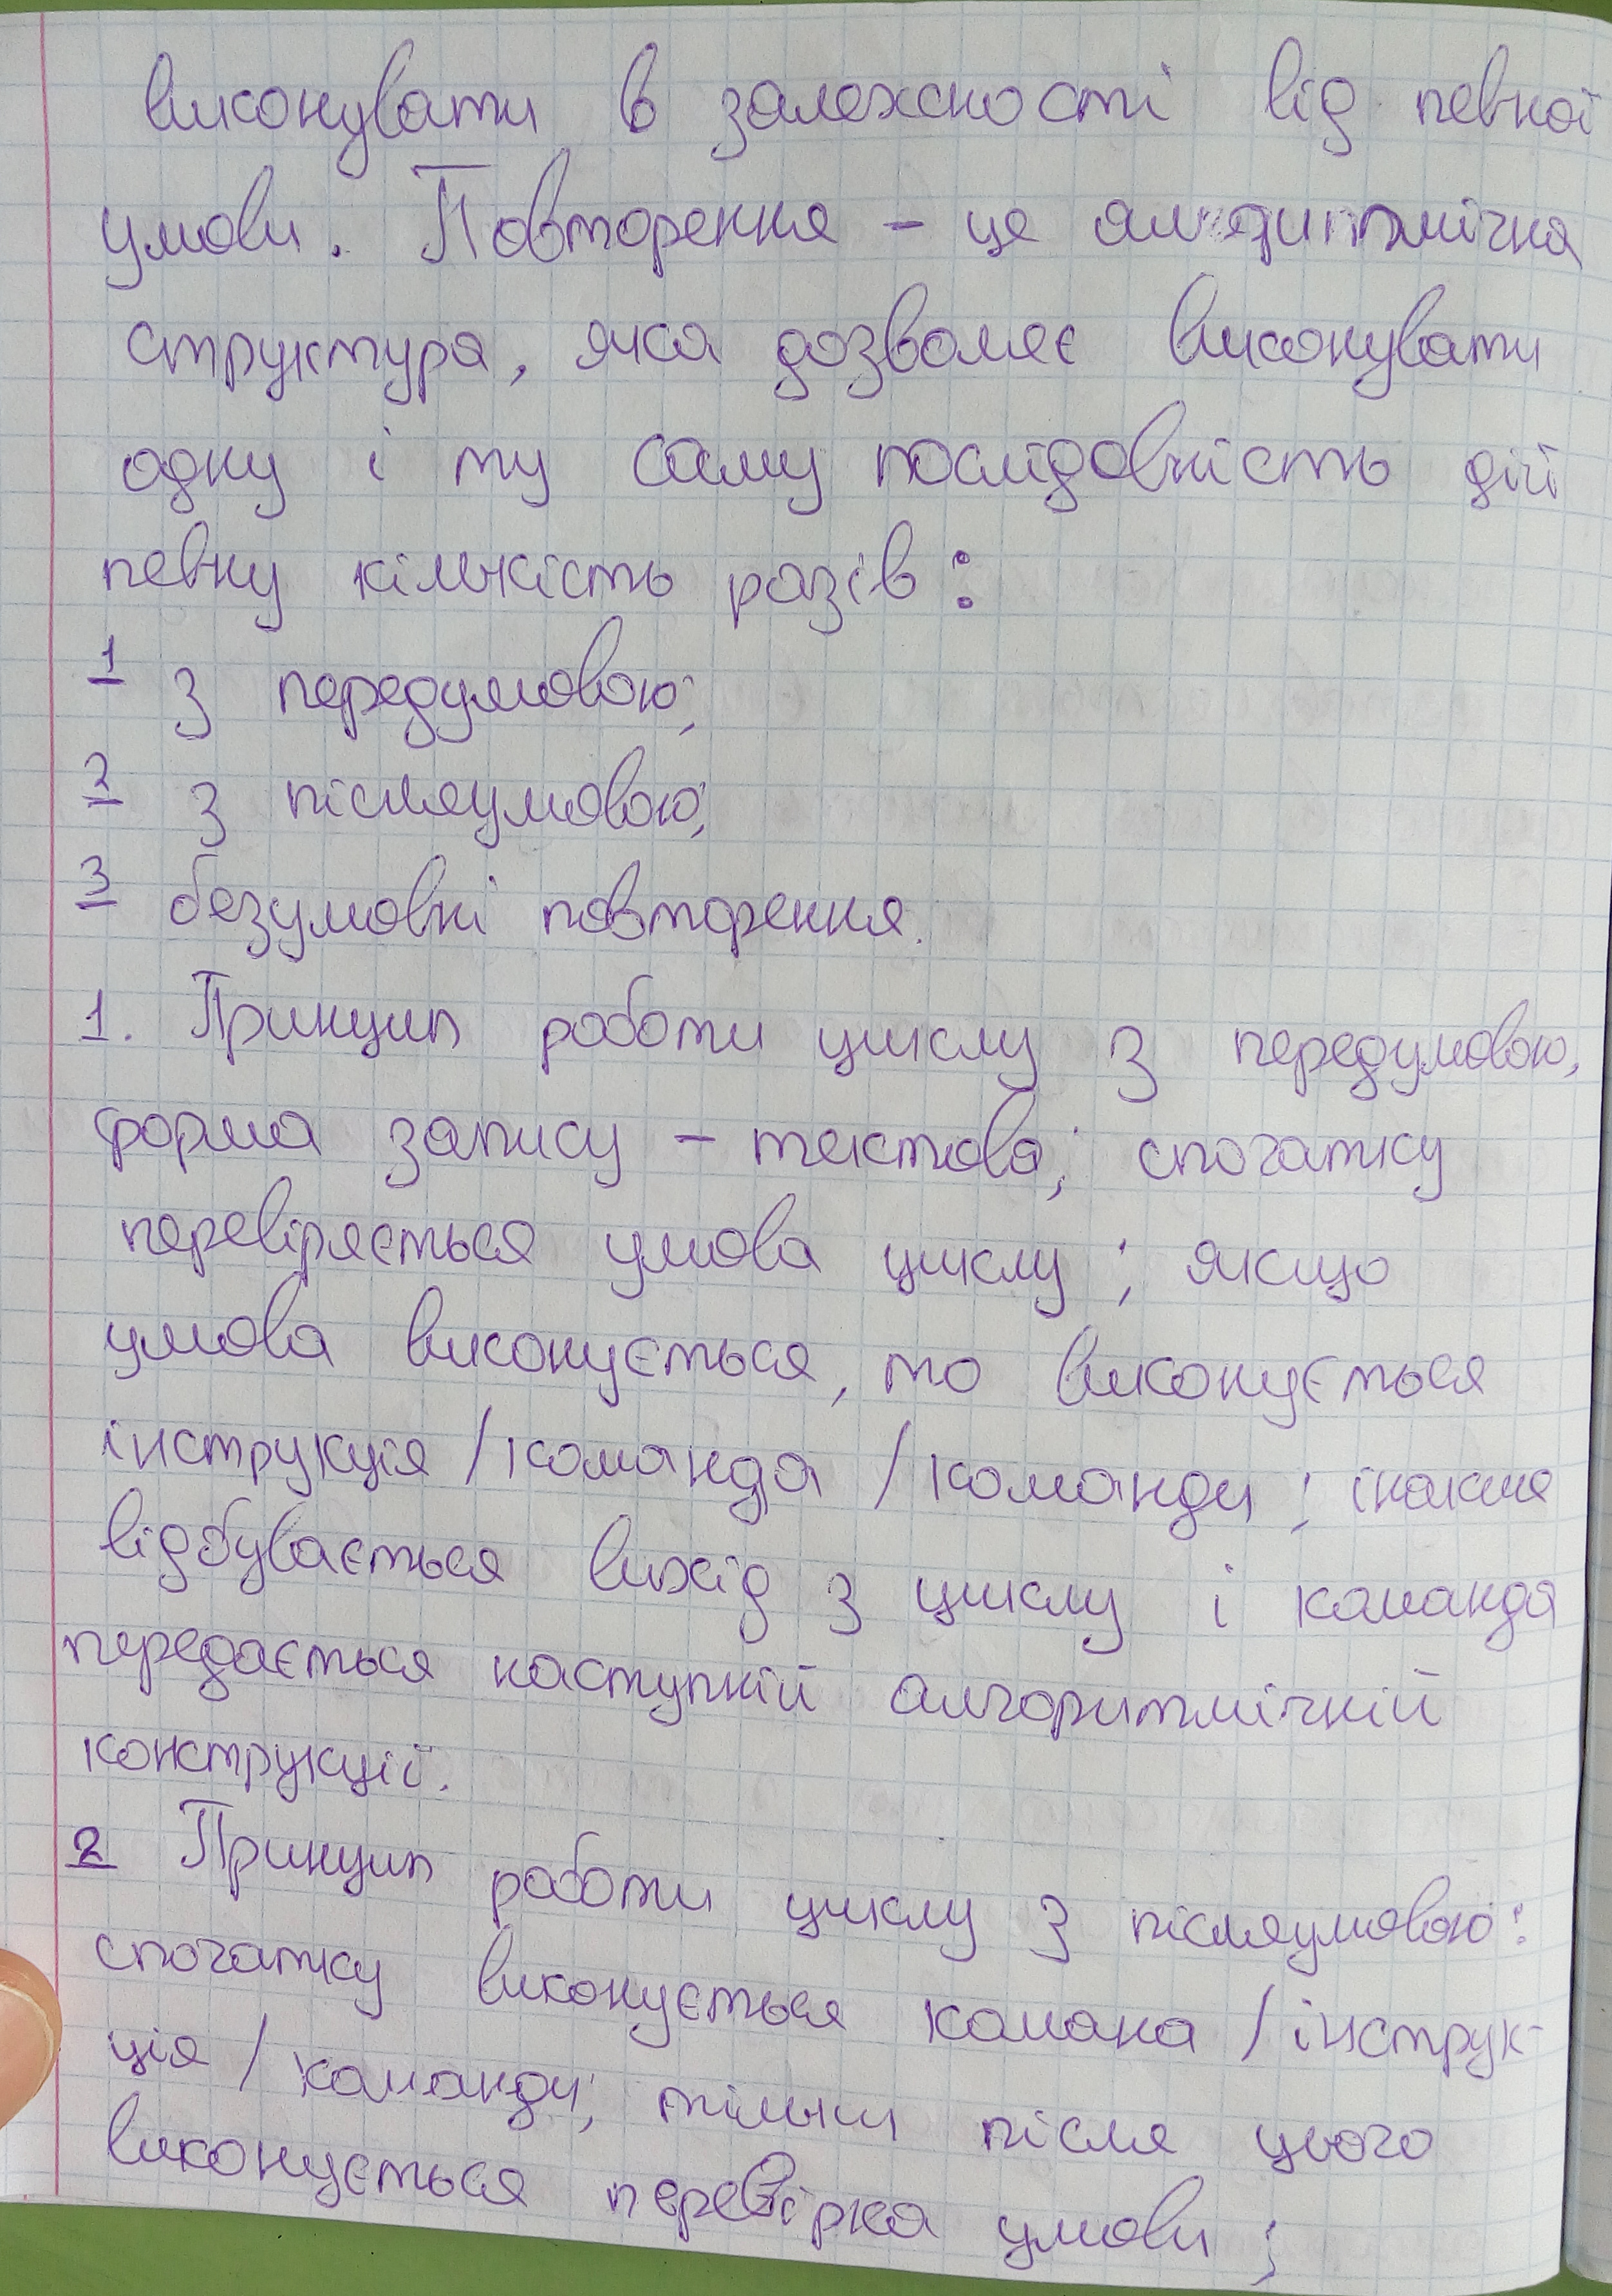 виконувати в залежності від певної
умови. Повторення – це алгоритмічна
структура, яка дозволяє виконувати
одну і ту саму послідовність дій
певну кількість разів:
1 з передумовою;
2 з післяумовою;
3 безумовні повторення.
1. Принцип роботи циклу з передумовою,
форма запису – текстова; спочатку
перевіряється умова циклу; якщо
умова виконується, то виконується
інструкція / команда / команди; інакше
відбувається вихід з циклу і команда
передається наступній алгоритмічній
конструкції.
2 Принцип роботи циклу з післяумовою:
спочатку виконується камана / інструк-
ція / команди; тільки після цього
виконується перевірка умови;